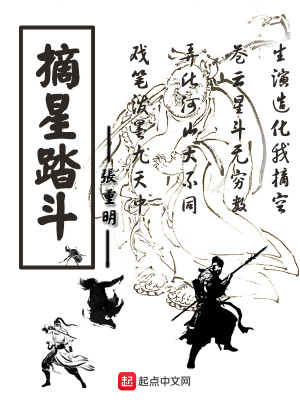 摘星踏斗
張重明
生演造化我摘空
苍云星斗无穷数
弄此河山大不同
戏笔泼墨九天中
起点中文网